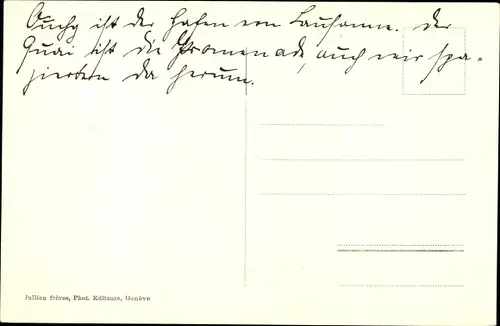 Ouchy ist der Hafen von Lausanne. Der
Quai ist die Promenade, auch wir spa-
zierten da herum.
Jullien frères, Phot. Éditeurs, Genève